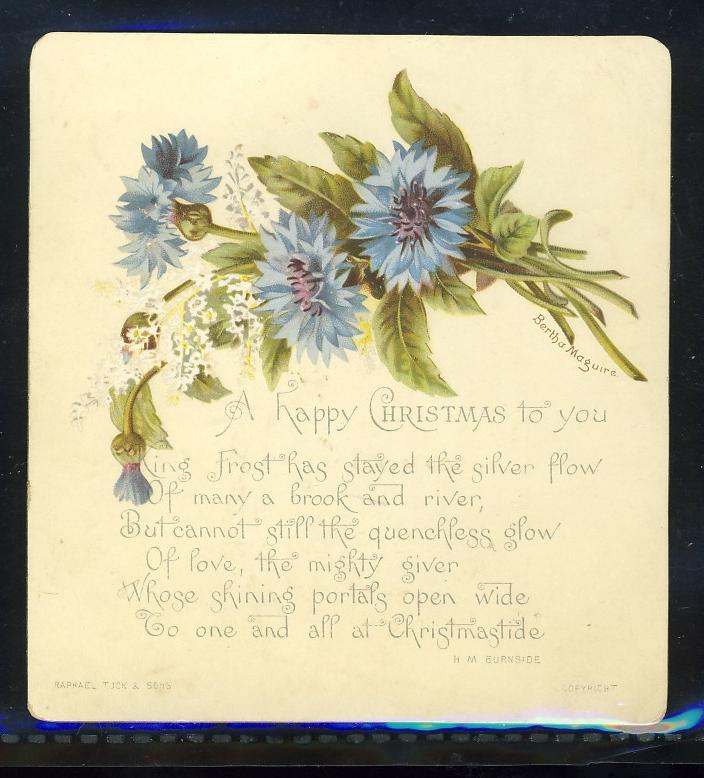 Bertha Maguire
A happy CHRISTMAS to you
King Frost has stayed the silver flow
Of many a brook and river,
But cannot still the quenchless glow
Of love, the mighty giver
Whose shining portals open wide
To one and all at Christmastide
H M BURNSIDE
RAPHAEL TUCK & SONS
COPYRIGHT